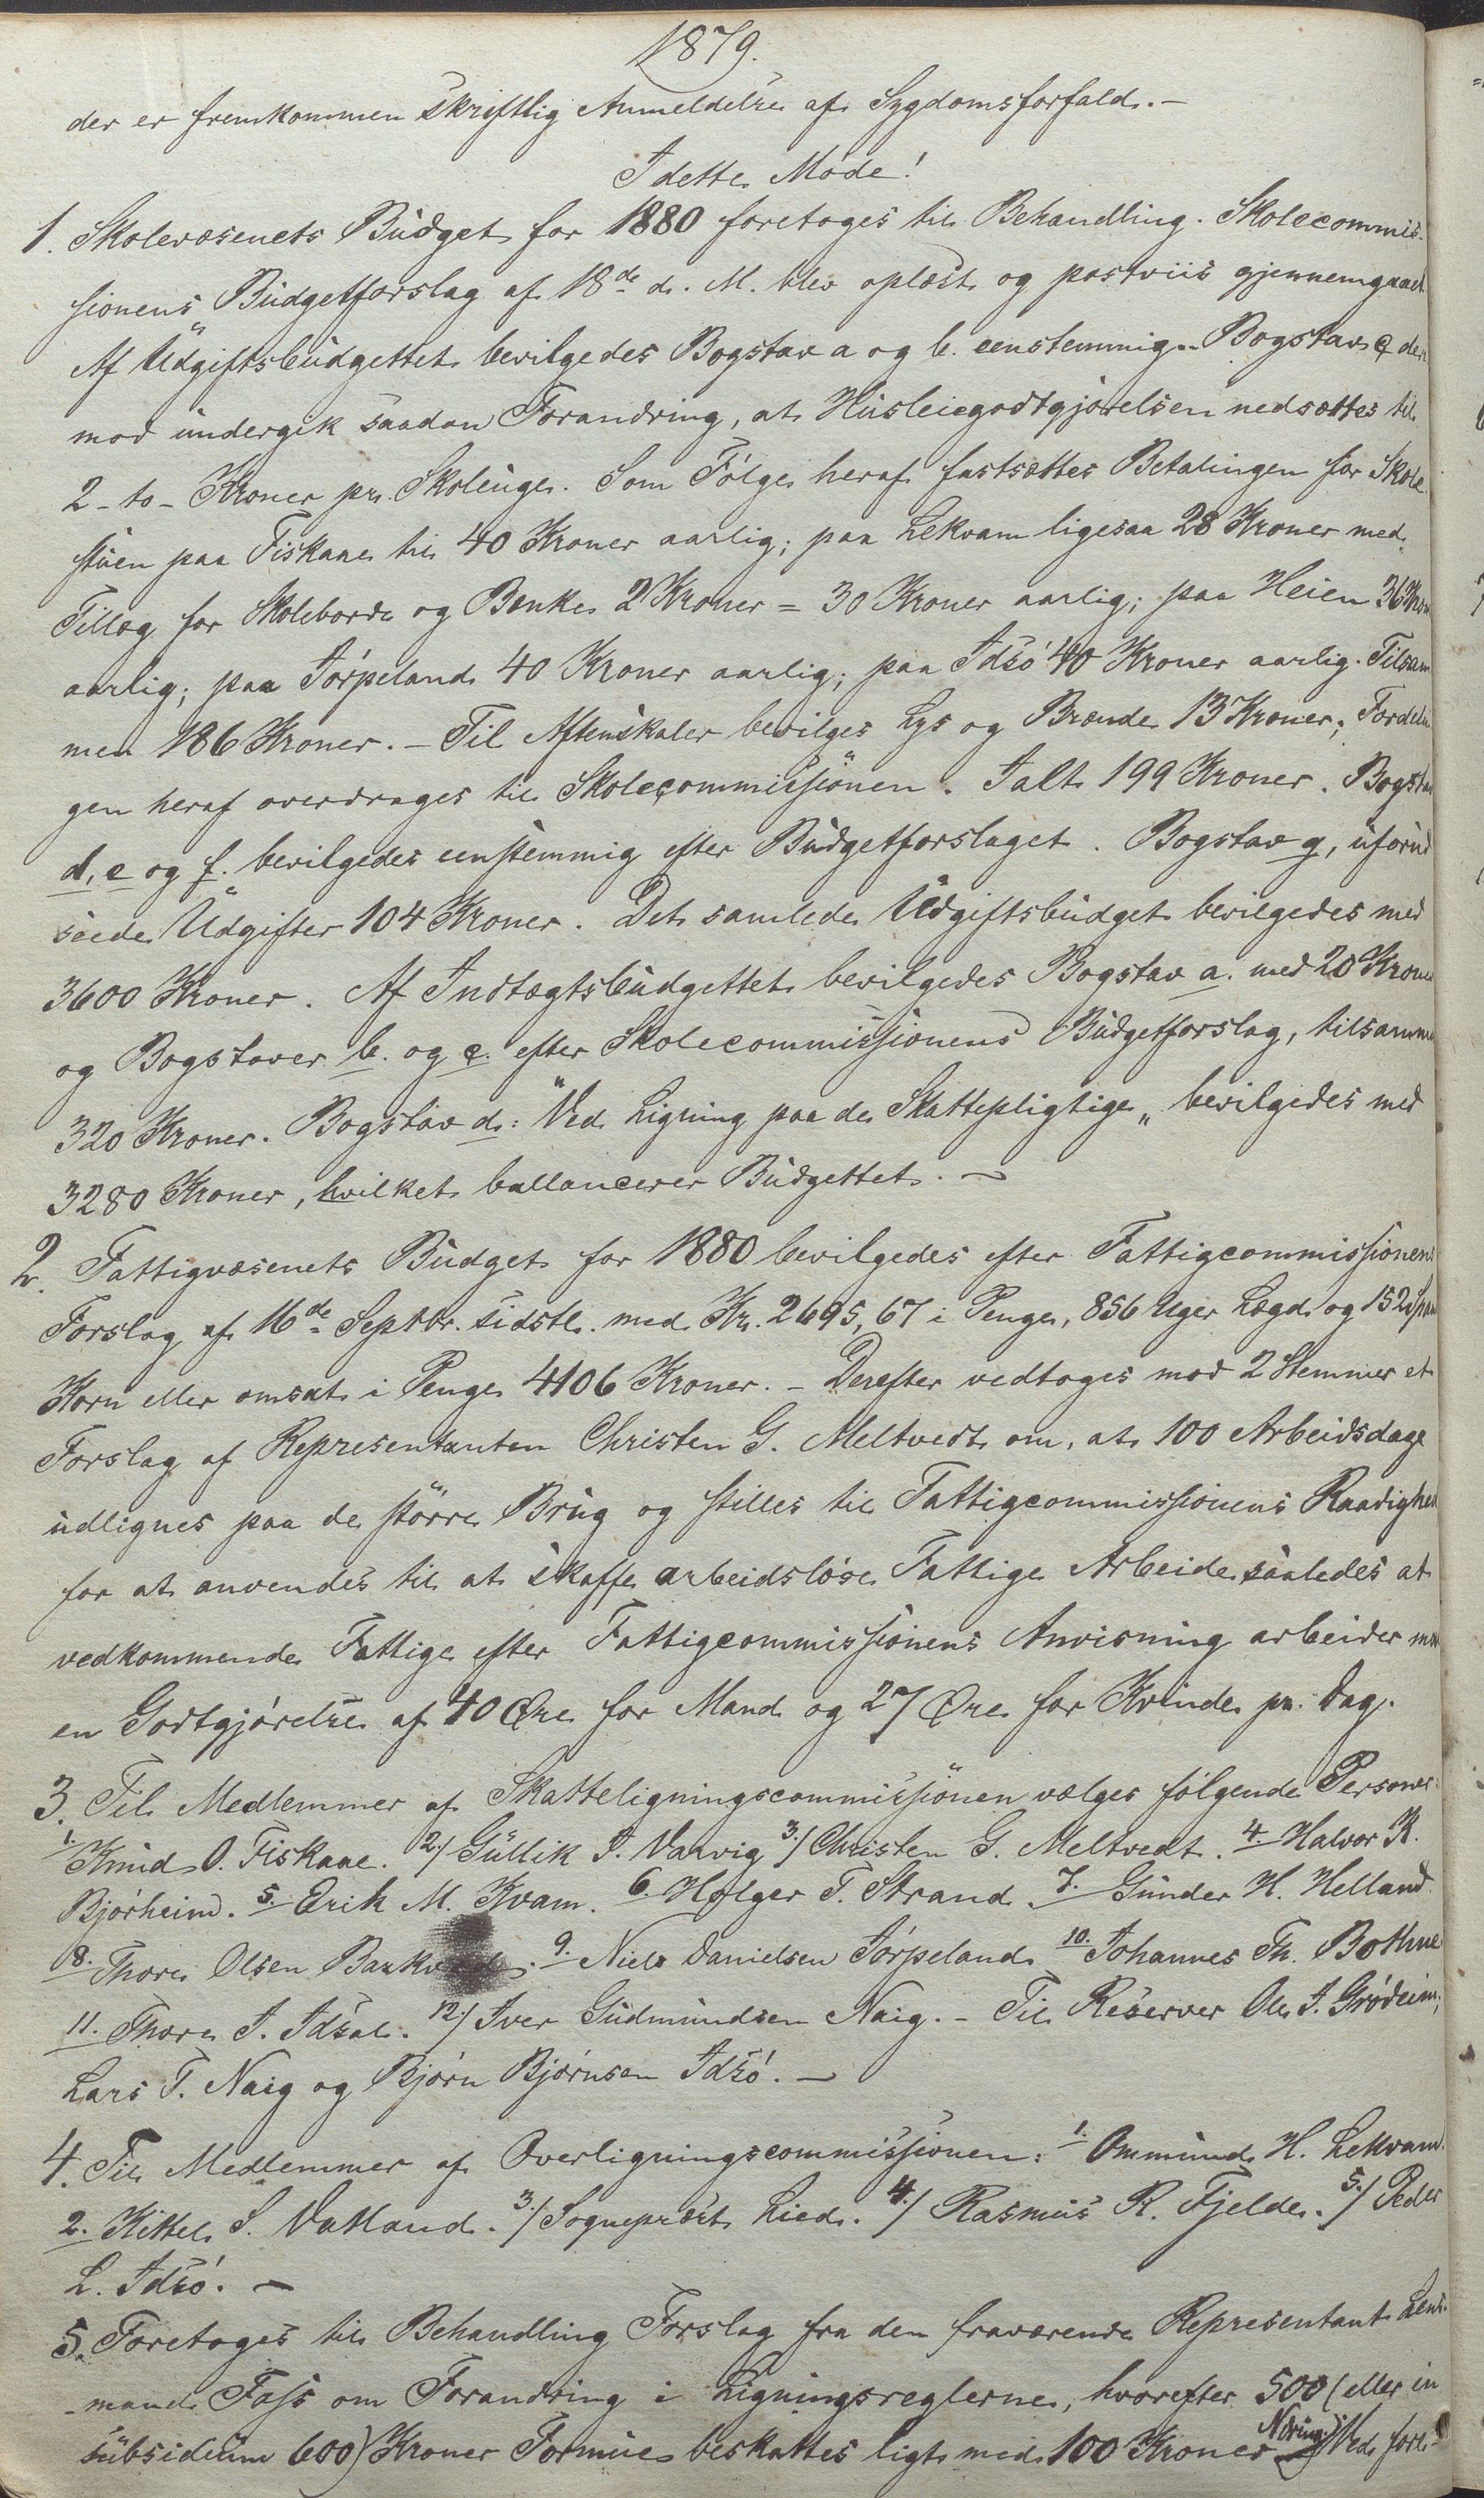 1879.
der er fremkommen skriftlig Anmeldelse af Sygdomsforfald. –
I dette Møde!
1. Skolevæsenets Budget for 1880 foretoges til Behandling. Skolecommis-
sionens Budgetforslag af 18de d. M. blev oplæst og postviis gjennemgaaet
Af Udgiftsbudgettet bevilgedes Bogstav a og b. eenstemmig. Bogstav c der
mod undergik saadan Forandring, at Huusleiegodtgjørelsen nedsættes til
2 - to - Kroner pr. Skoleuge. Som Følge heraf fastsættes Betalingen for Skole
stuen paa Fiskaae til 40 Kroner aarlig; paa Lekvam ligesaa 28 Kroner med
Tillæg for Skoleborde og Bænke 2 Kroner = 30 Kroner aarlig; paa Heien 36 Kron
aarlig; paa Jørpeland 40 Kroner aarlig; paa Idsø 40 Kroner aarlig. Tilsam
men 186 Kroner. – Til Aftenskoler bevilges Lys og Brænde 13 Kroner; Fordelin
gen heraf overdrages til Skolecommissionen. Ialt 199 Kroner. Bogstav
d, e og f. bevilgedes eenstemmig efter Budgetforslaget. Bogstav g, uforud
seede Udgifter 104 Kroner. Det samlede Udgiftsbudget bevilgedes med
3600 Kroner. Af Indtægtsbudgettet bevilgedes Bogstav a. med 20 Kroner
og Bogstaver b. og c. efter Skolecommissionens Budgetforslag, tilsammen
320 Kroner. Bogstav d: "Ved Ligning paa de Skattepligtige" bevilgedes med
3280 Kroner, hvilket ballancerer Budgettet. –
2. Fattigvæsenets Budget for 1880 bevilgedes efter Fattigcommissionens
Forslag af 16de Septbr. sidstl. med Kr. 2695,67 i Penge, 856 Uger Lægd og 152 Span
Korn eller omsat i Penge 4106 Kroner. – Derefter vedtoges mod 2 Stemmer et
Forslag af Representanten Christen G. Meltvedt om, at 100 Arbeidsdage
udlignes paa de større Brug og stilles til Fattigcommissionens Raadighed
for at anvendes til at skaffe arbeidsløse Fattige Arbeide saaledes at
vedkommende Fattige efter Fattigcommissionens Anvisning arbeider mod
en Godtgjørelse af 40 Øre for Mand og 27 Øre for Kvinde pr. Dag.
3. Til Medlemmer af Skatteligningscommissionen vælges følgende Personer:
1. Knud O. Fiskaae. 2/ Gullik J. Varvig 3/ Christen G. Meltvedt. 4. Halvor K.
Bjørheim. 5. Erik M. Kvam. 6. Holger T. Strand. 7. Gunder H. Helland
8. Thore Olsen Barkved. 9. Niels Danielsen Jørpeland 10. Johannes Th. Bothne
11. Thore J. Idsal. 12/ Iver Gudmundsen Naig. – Til Reserver Ole J. Grødeim;
Lars T. Naig og Bjørn Bjørnsen Idsø. –
4. Til Medlemmer af Overligningscommissionen: 1. Ommund H. Lekvam.
2. Kittel S. Vatland. 3/ Sogneprest Lied. 4/ Rasmus R. Fjelde. 5/ Peder
L. Idsø. –
5. Foretoges til Behandling Forslag fra den fraværende Representant Lens-
mand Fass om Forandring i Ligningsreglerne, hvorefter 500 (eller in
subsidium 600) Kroner Formue beskattes ligt med 100 Kroner Næring. Ved fore-